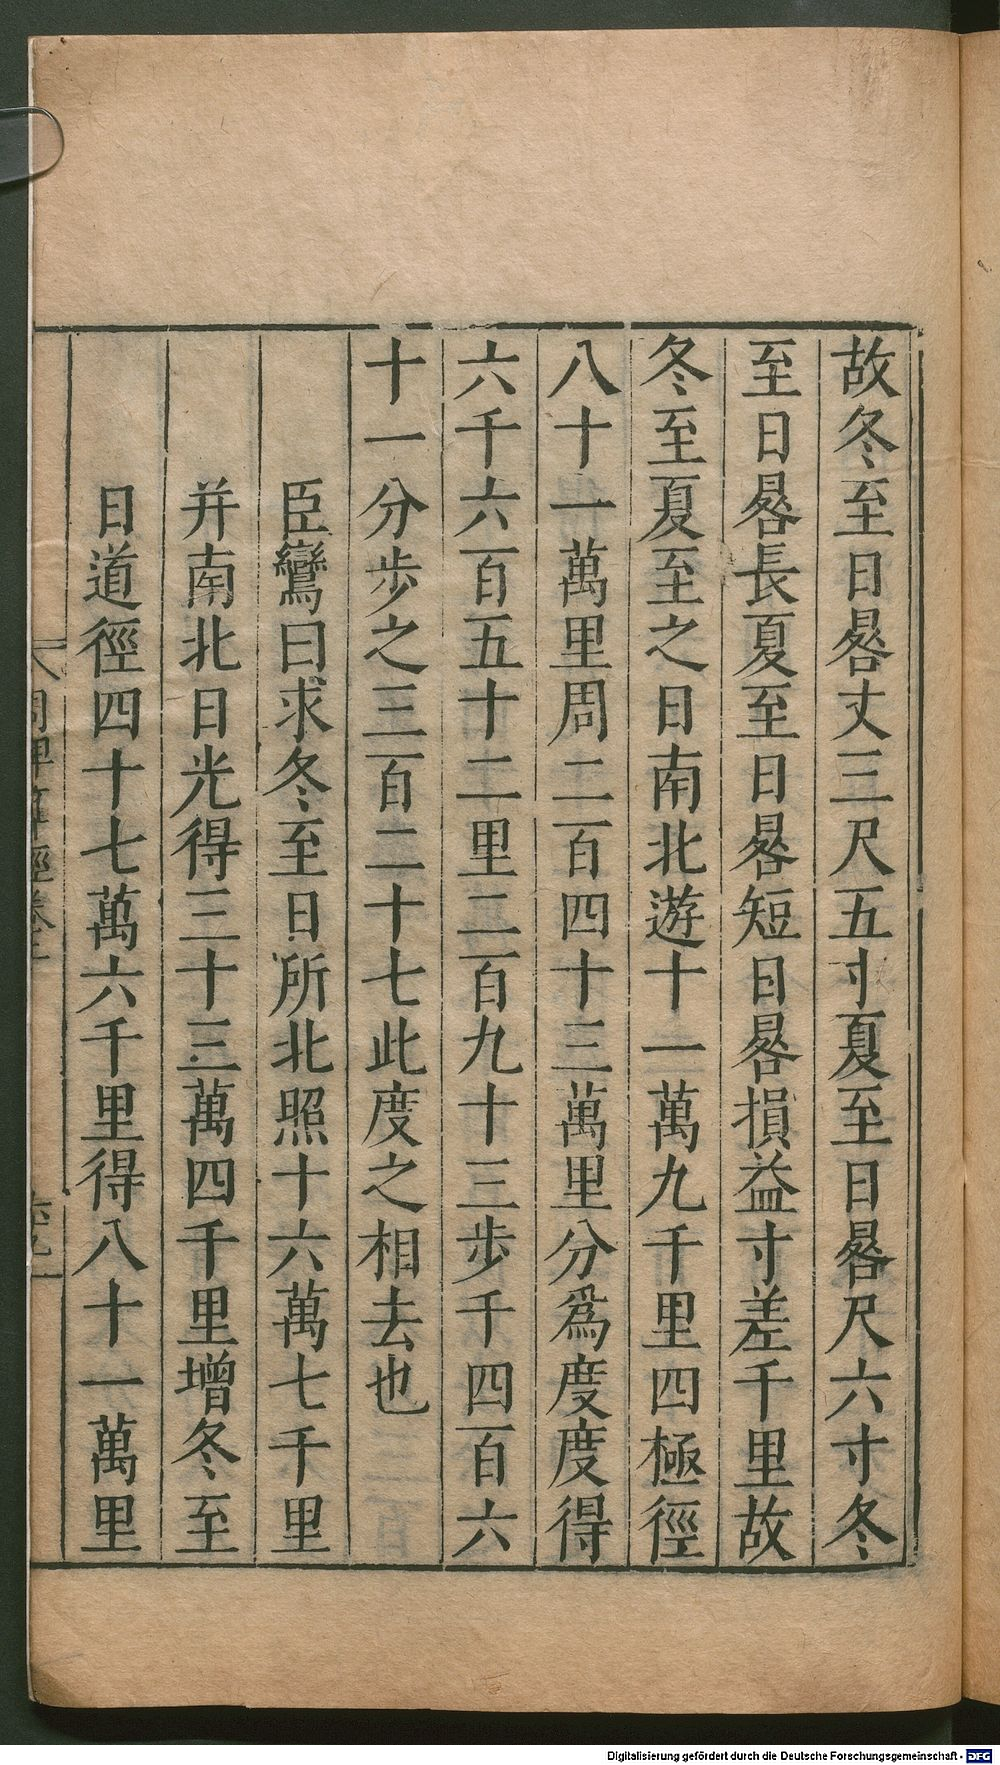 故冬至日晷丈三尺五寸夏至日晷尺六寸冬
至日晷長夏至日晷短日晷損益寸差千里故
冬至夏至之日南北遊十一萬九千里四極徑
八十一萬里周二百四十三萬里分爲度度得
六千六百五十二里二百九十三步千四百六
十一分步之三百二十七此度之相去也
臣鸞曰求冬至日所北照十六萬七千里
并南北日光得三十三萬四千里增冬至
日道徑四十七萬六千里得八十一萬里
周髀算經卷上
Digitalisierung gefördert durch die Deutsche Forschungsgemeinschaft - DFG